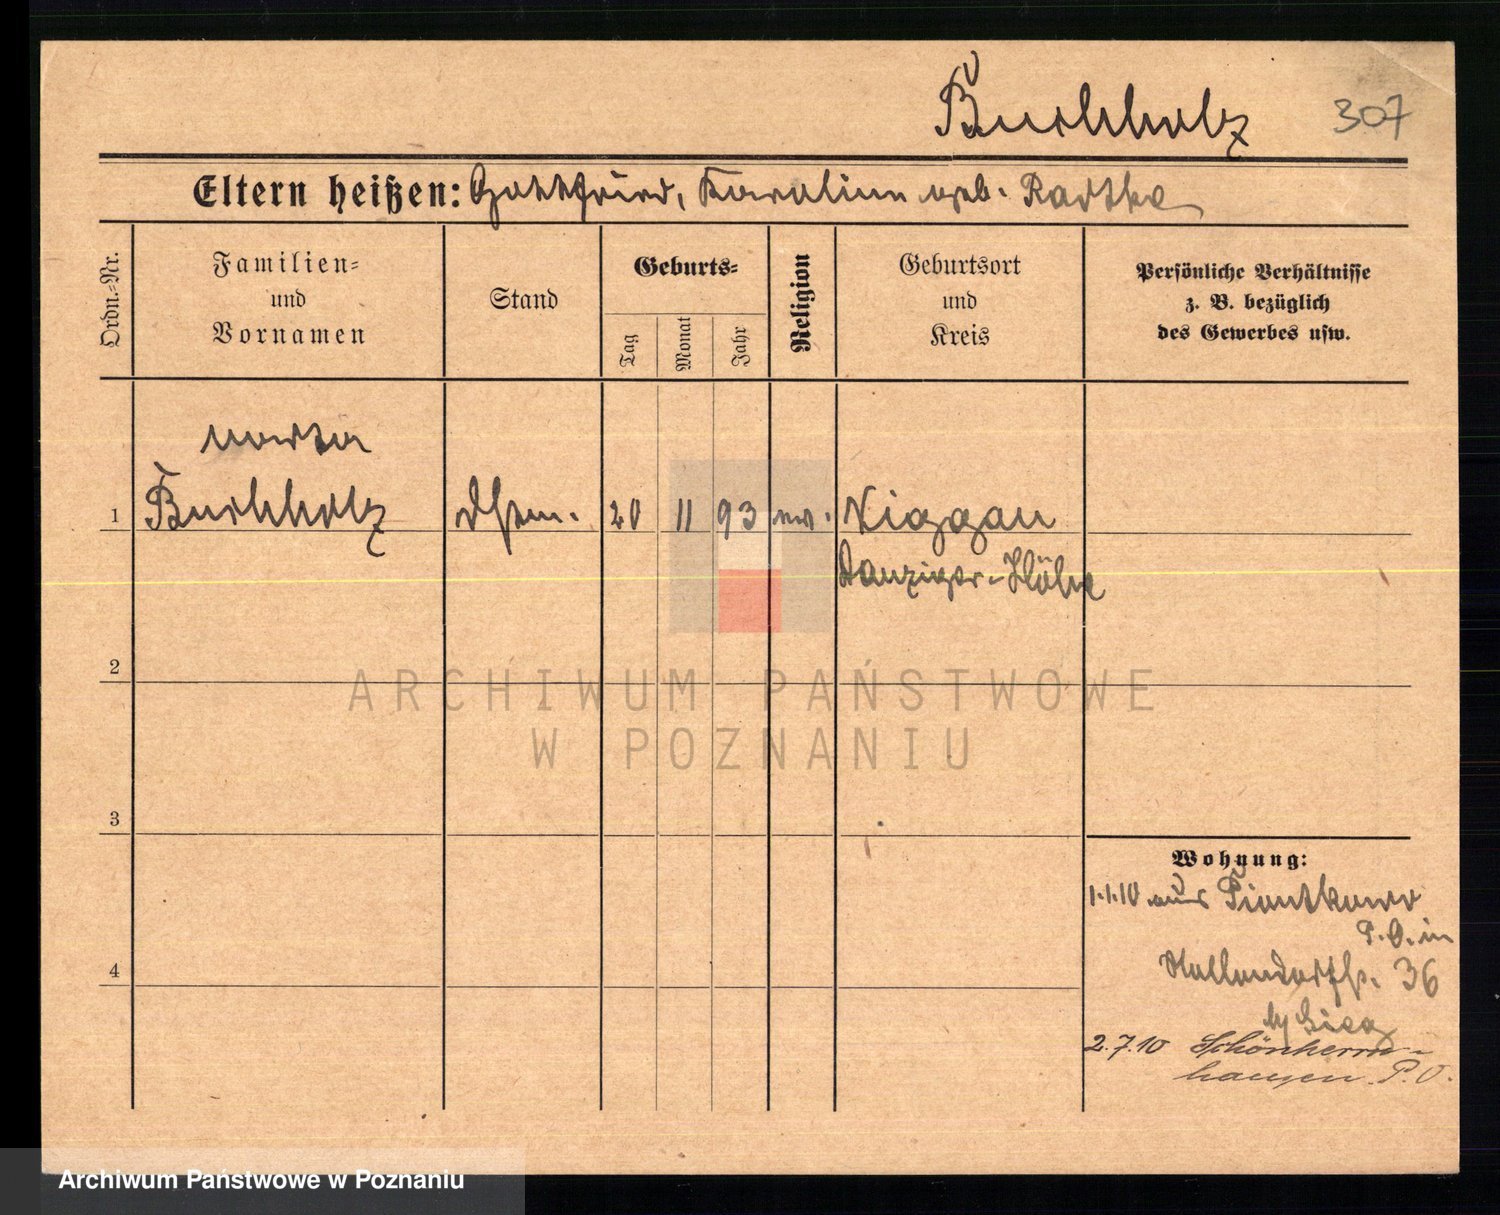 Buchholz 307
Eltern heißen: Gottfried, Karoline geb. Radtke
Ordn.-Nr.
Familien-
und
Vornamen
Stand
Geburts-
Tag
Monat
Jahr
Religion
Geburtsort
und
Kreis
Persönliche Verhältnisse
z. B. bezüglich
des Gewerbes usw.
1 Buchholz 20 11 93
Danziger-Höhe
2
ARCHIWUM PAŃSTWOWE
W POZNANIU
3
4
Wohnung:
1.1.10 aus Piontkowo
P. O. in
36
2.7.10 Schönherrn-
hausen P. O.
Archiwum Państwowe w Poznaniu